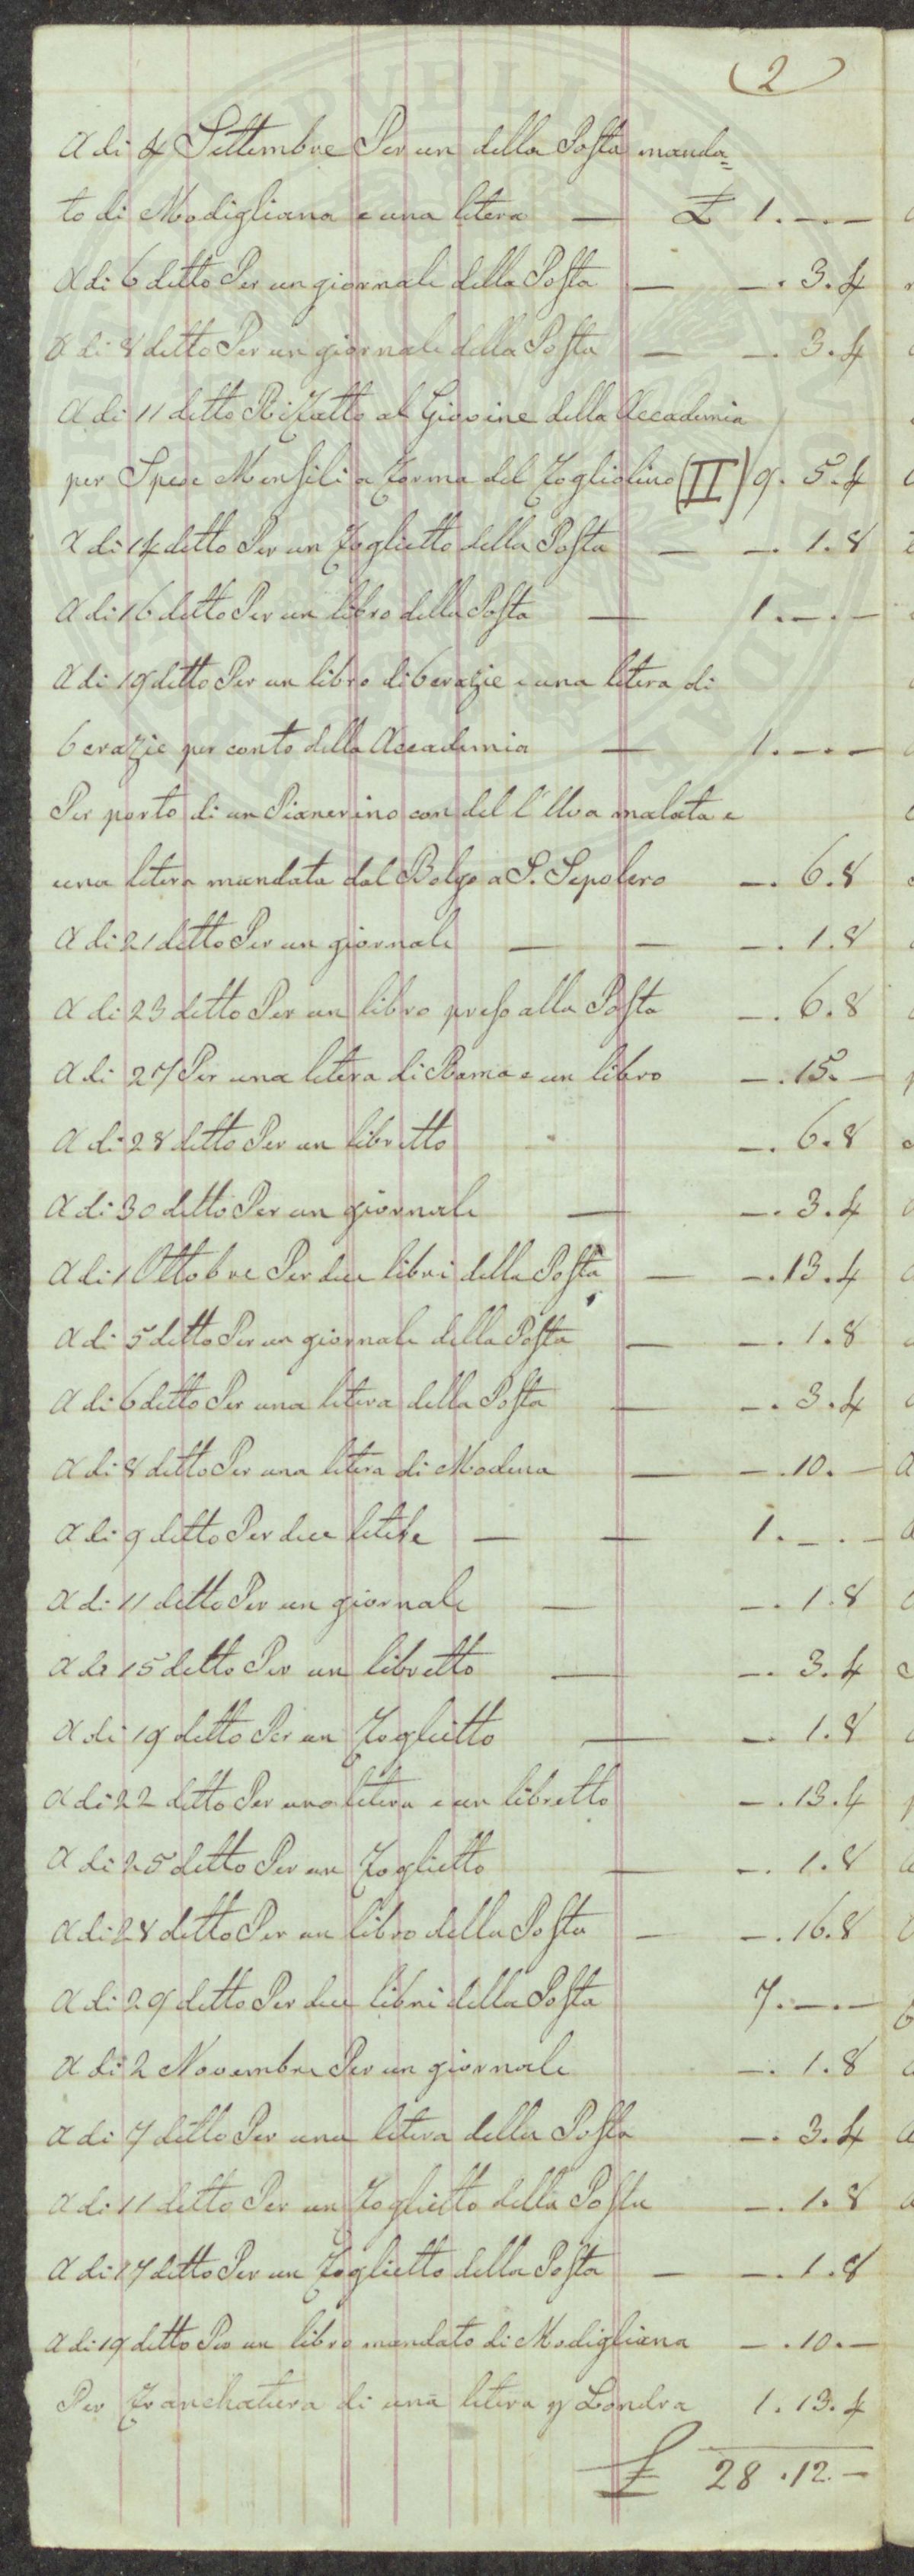 (2)
A di 4 Settembre Per un della Posta manda=
to di Modigliana e una litera — £ 1.—.—
A di 6 ditto Per un giornale della Posta — —. 3. 4
A di 8 ditto Per un giornale della Posta — —. 3. 4
A di 11 ditto Rifatto al Giovine della Accademia
per Spese Mensili a forma del fogliolino (II) 9. 5. 4
A di 14 ditto Per un foglietto della Posta — —. 1. 8
A di 16 ditto Per un libro della Posta — 1.—.—
A di 19 ditto Per un libro di 6 crazie e una litera di
6 crazie per conto della Accademia — 1.—.—
Per porto di un Pianerino con del l'Uva malata e
una litera mandata dal Bolgo a S. Sepolcro —. 6. 8
A di 21 ditto Per un giornale — — —. 1. 8
A di 23 ditto Per un libro preso alla Posta —. 6. 8
A di 27 Per una litera di Roma e un libro —. 15. —
A di 28 ditto Per un libretto —. 6. 8
A di 30 ditto Per un giornale — —. 3. 4
A di 1 Ottobre Per due libri della Posta — —. 13. 4
A di 5 ditto Per un giornale della Posta — —. 1. 8
A di 6 ditto Per una litera della Posta — —. 3. 4
A di 8 ditto Per una litera di Modena — —. 10. —
A di 9 ditto Per due litere — — 1. —. —
A di 11 ditto Per un giornale — —. 1. 8
A di 15 ditto Per un libretto — —. 3. 4
A di 19 ditto Per un foglietto — —. 1. 8
A di 22 ditto Per una litera e un libretto —. 13. 4
A di 25 ditto Per un foglietto — —. 1. 8
A di 28 ditto Per un libro della Posta — —. 16. 8
A di 29 ditto Per due libri della Posta 7. —. —
A di 2 Novembre Per un giornale —. 1. 8
A di 7 ditto Per una litera della Posta —. 3. 4
A di 11 ditto Per un foglietto della Posta —. 1. 8
A di 17 ditto Per un foglietto della Posta — —. 1. 8
A di 19 ditto Per un libro mandato di Modigliana —. 10. —
Per franchatura di una litera p Londra 1. 13. 4
£ 28. 12. —